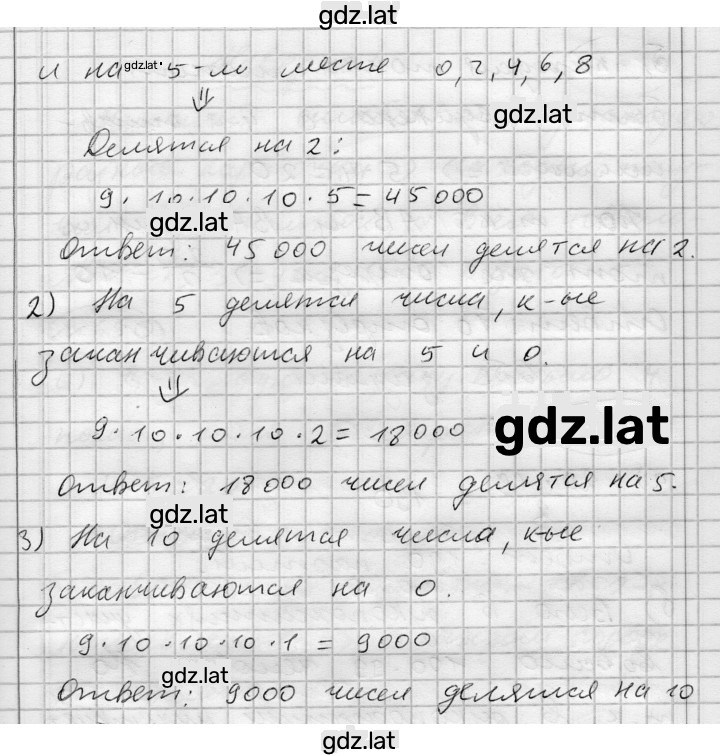 gdz.lat
и на 5-м месте 0,2,4,6,8
gdz.lat
⇓
gdz.lat
Делятся на 2:
9·10·10·10·5=45000
gdz.lat
Ответ: 45000 чисел делятся на 2.
2) На 5 делятся числа, к-ые
заканчиваются на 5 и 0.
⇓
9·10·10·10·2=18000
gdz.lat
Ответ: 18000 чисел делятся на 5.
gdz.lat
3) На 10 делятся числа, к-ые
заканчиваются на 0.
9·10·10·10·1=9000
gdz.lat
Ответ: 9000 чисел делятся на 10
gdz.lat